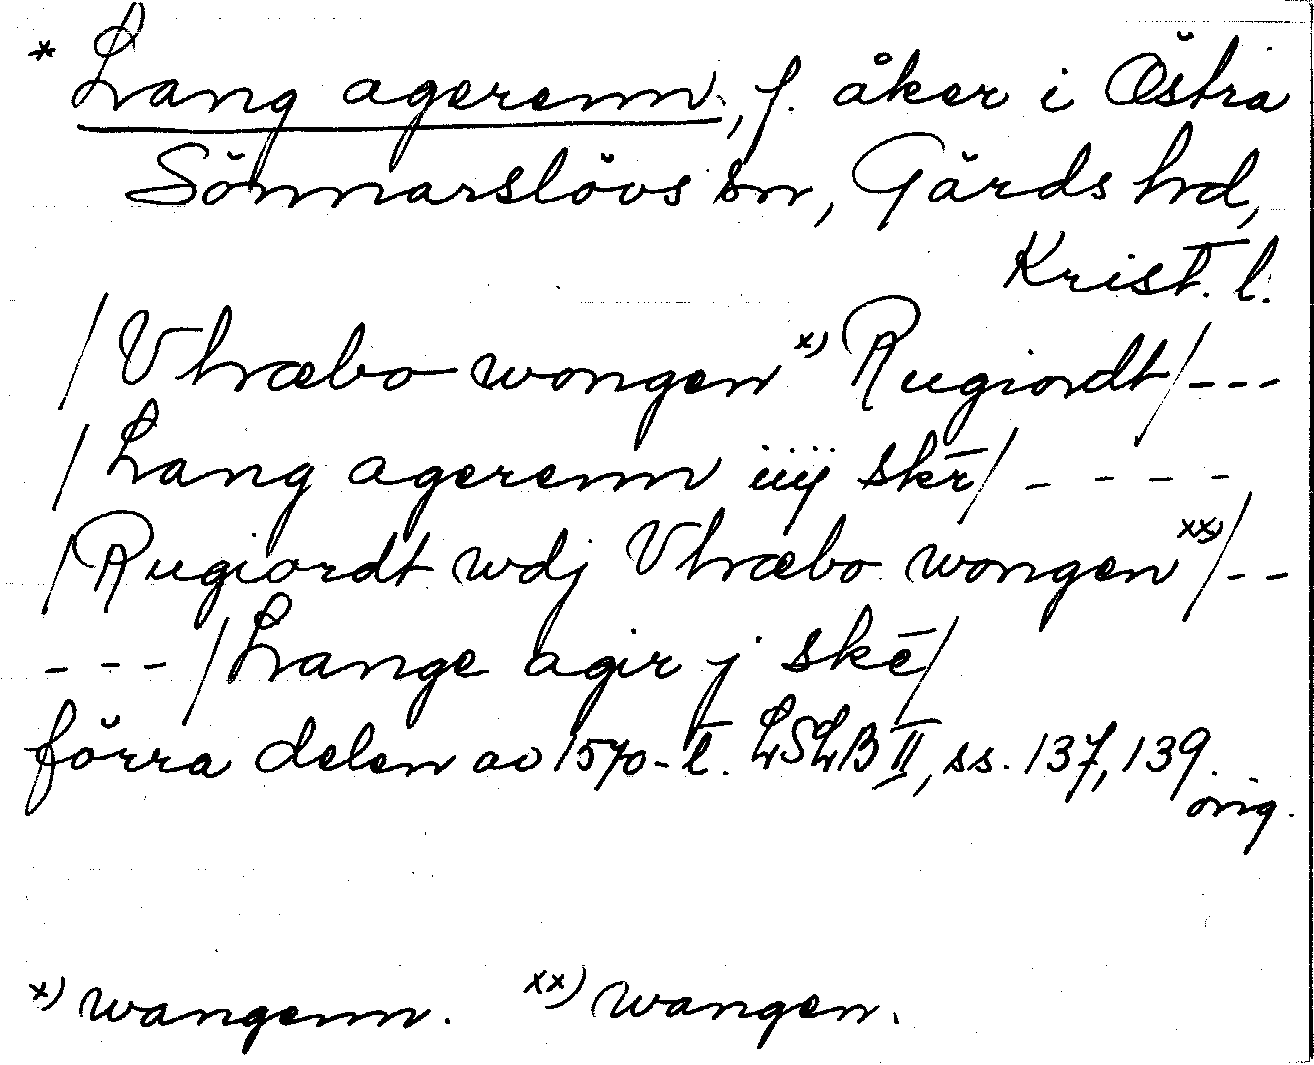 * Lang agerenn, f. åker i Östra
Sönnarslövs sn, Gärds hd,
Krist. l.
/Vhræbo wongen x) Rugiordt/---
/Lang agerenn iiij skr̄/ - - - -
/Rugiordt wdj Vhræbo wongen xx)/--
--- /Lange agir j skē/
förra delen av 1570-t. LSLB II, ss. 137, 139.
orig.
x) wangenn. xx) wangen.